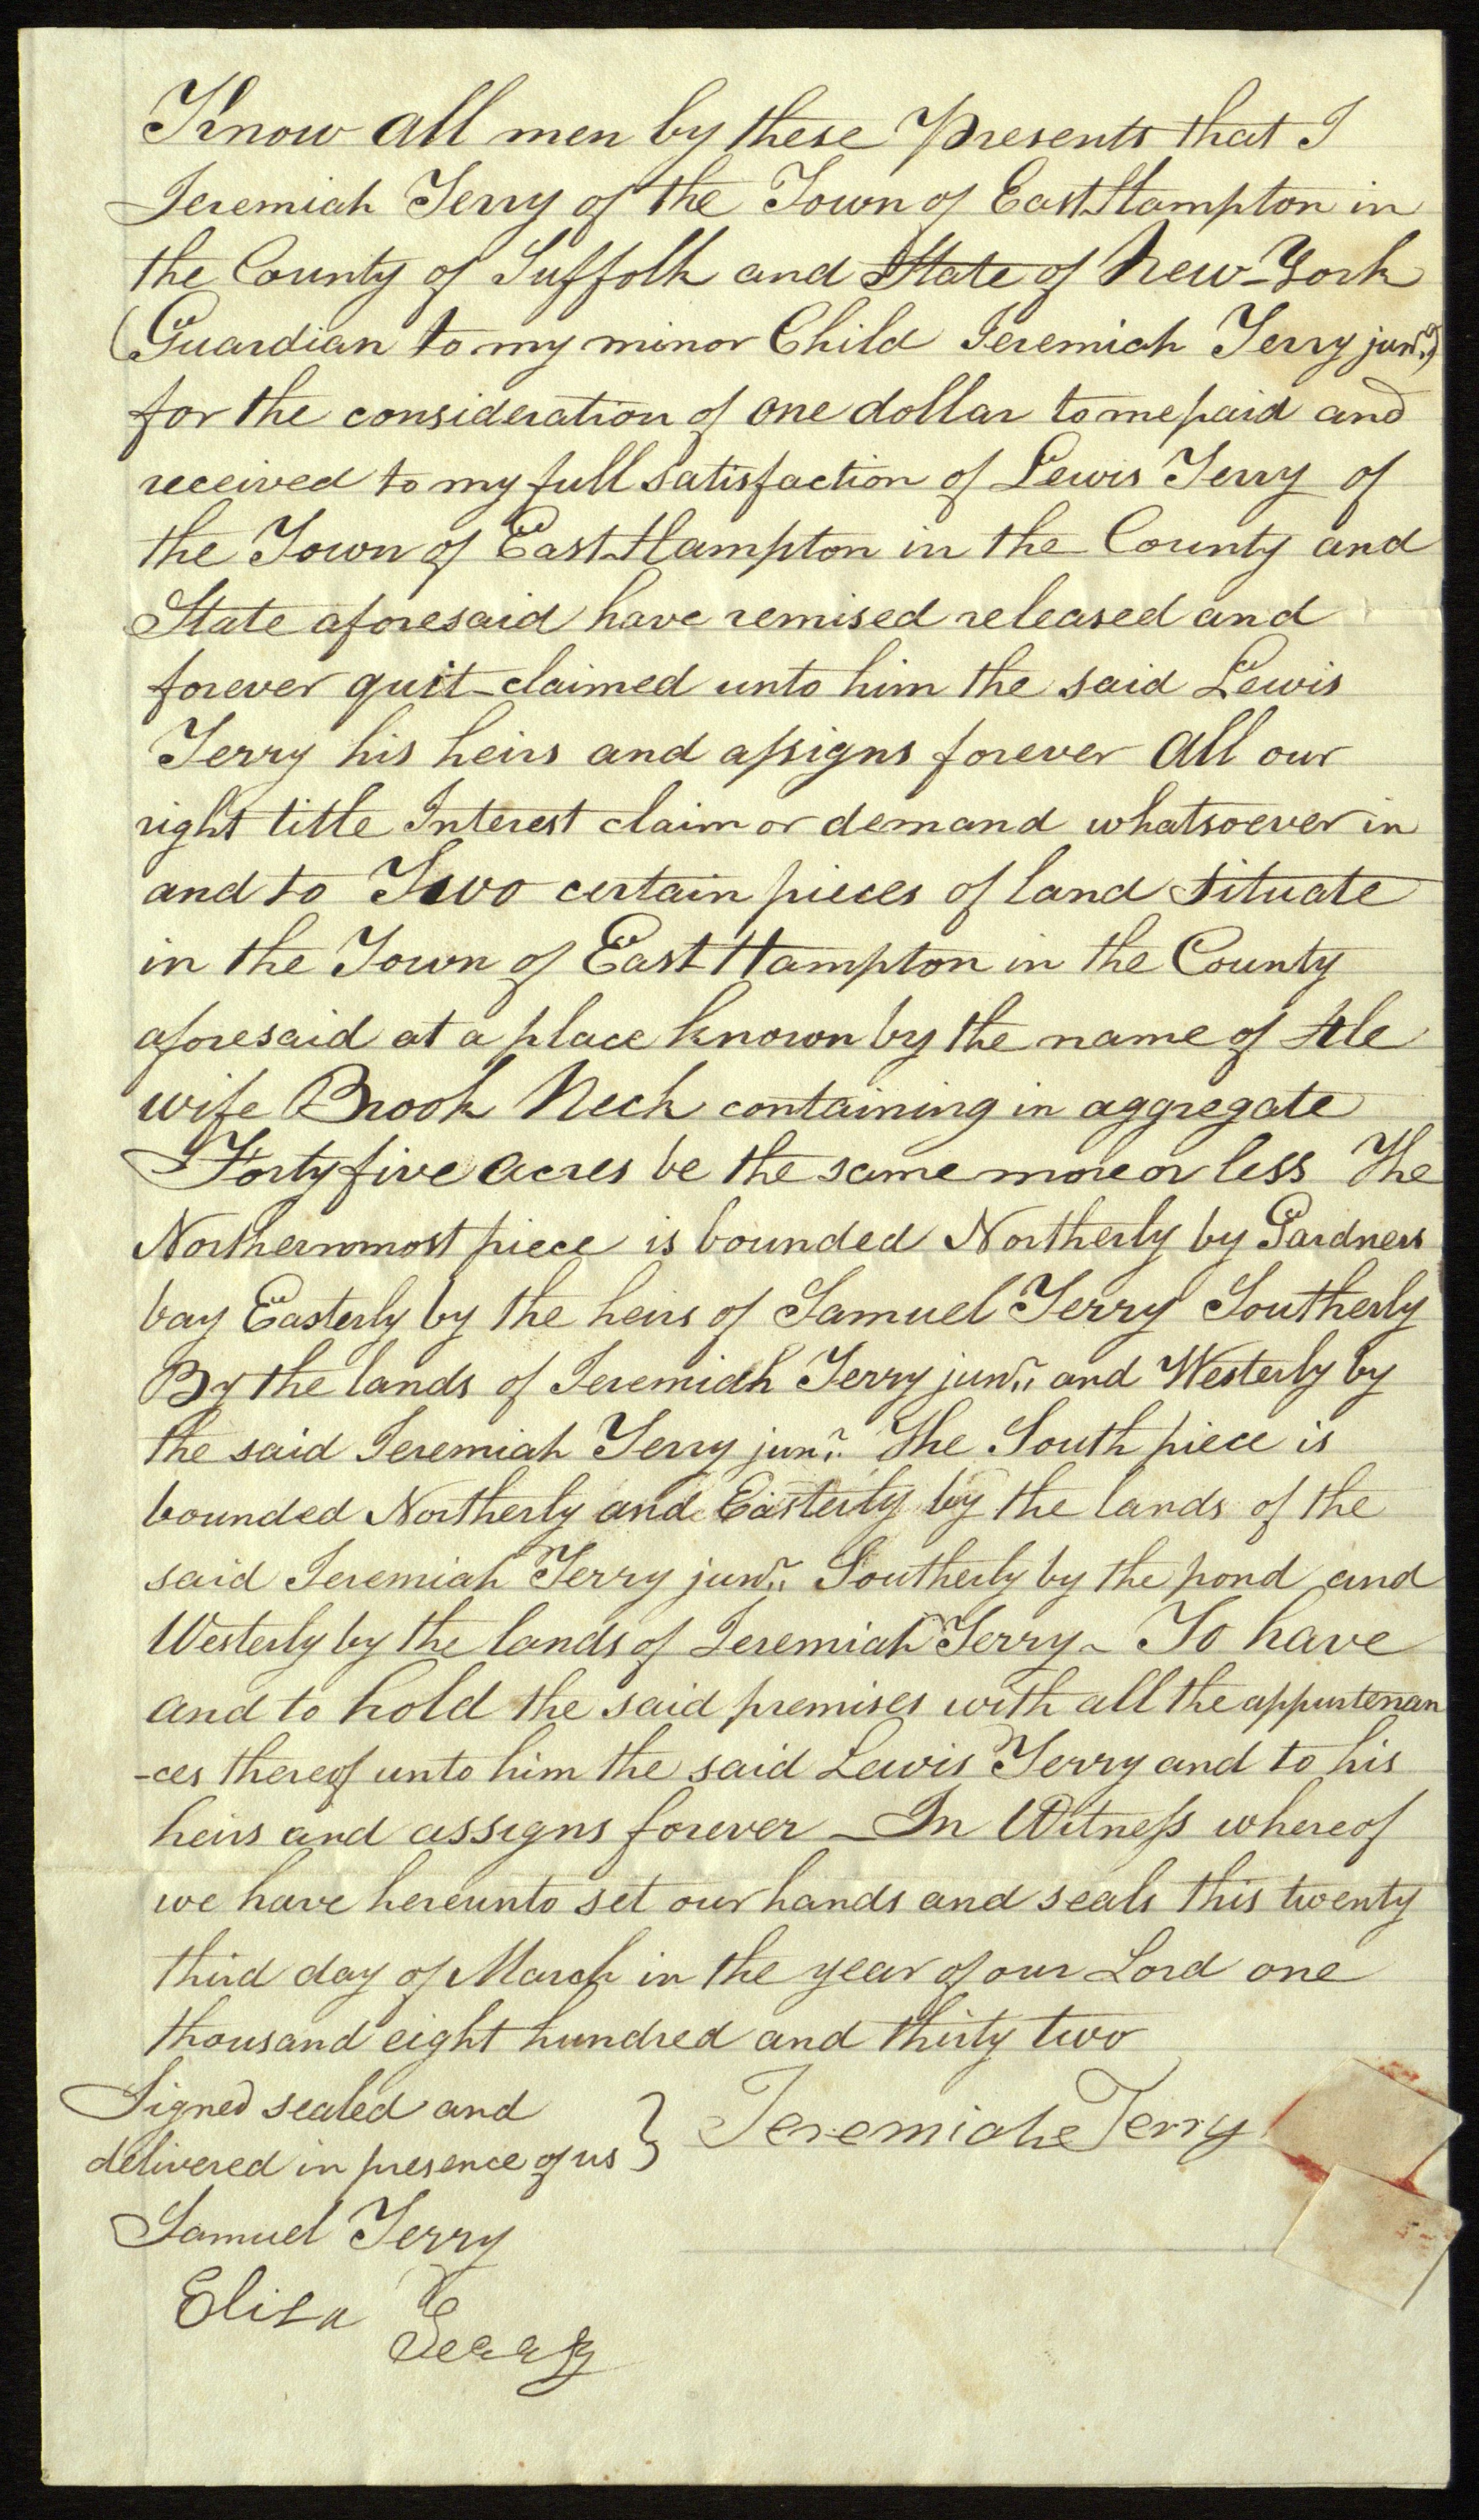 Know all men by these Presents that I
Jeremiah Terry of the Town of East-Hampton in
the County of Suffolk and State of New-York
(Guardian to my minor Child Jeremiah Terry junr.)
for the consideration of one dollar to me paid and
received to my full satisfaction of Lewis Terry of
the Town of East-Hampton in the County and
State aforesaid have remised released and
forever quit-claimed unto him the said Lewis
Terry his heirs and assigns forever all our
right title Interest claim or demand whatsoever in
and to Two certain pieces of land situate
in the Town of East-Hampton in the County
aforesaid at a place known by the name of Ale
wife Brook Neck containing in aggregate
Forty five acres be the same more or less The
Northernmost piece is bounded Northerly by Gardners
bay Easterly by the heirs of Samuel Terry Southerly
By the lands of Jeremiah Terry junr. and Westerly by
the said Jeremiah Terry junr. The South piece is
bounded Northerly and Easterly by the lands of the
said Jeremiah Terry junr. Southerly by the pond and
Westerly by the lands of Jeremiah Terry - To have
and to hold the said premises with all the appurtenan
-ces thereof unto him the said Lewis Terry and to his
heirs and assigns forever - In Witness whereof
we have hereunto set our hands and seals this twenty
third day of March in the year of our Lord one
thousand eight hundred and thirty two
Signed sealed and
delivered in presence of us } Jeremiah Terry
Samuel Terry
Elisa
Terry